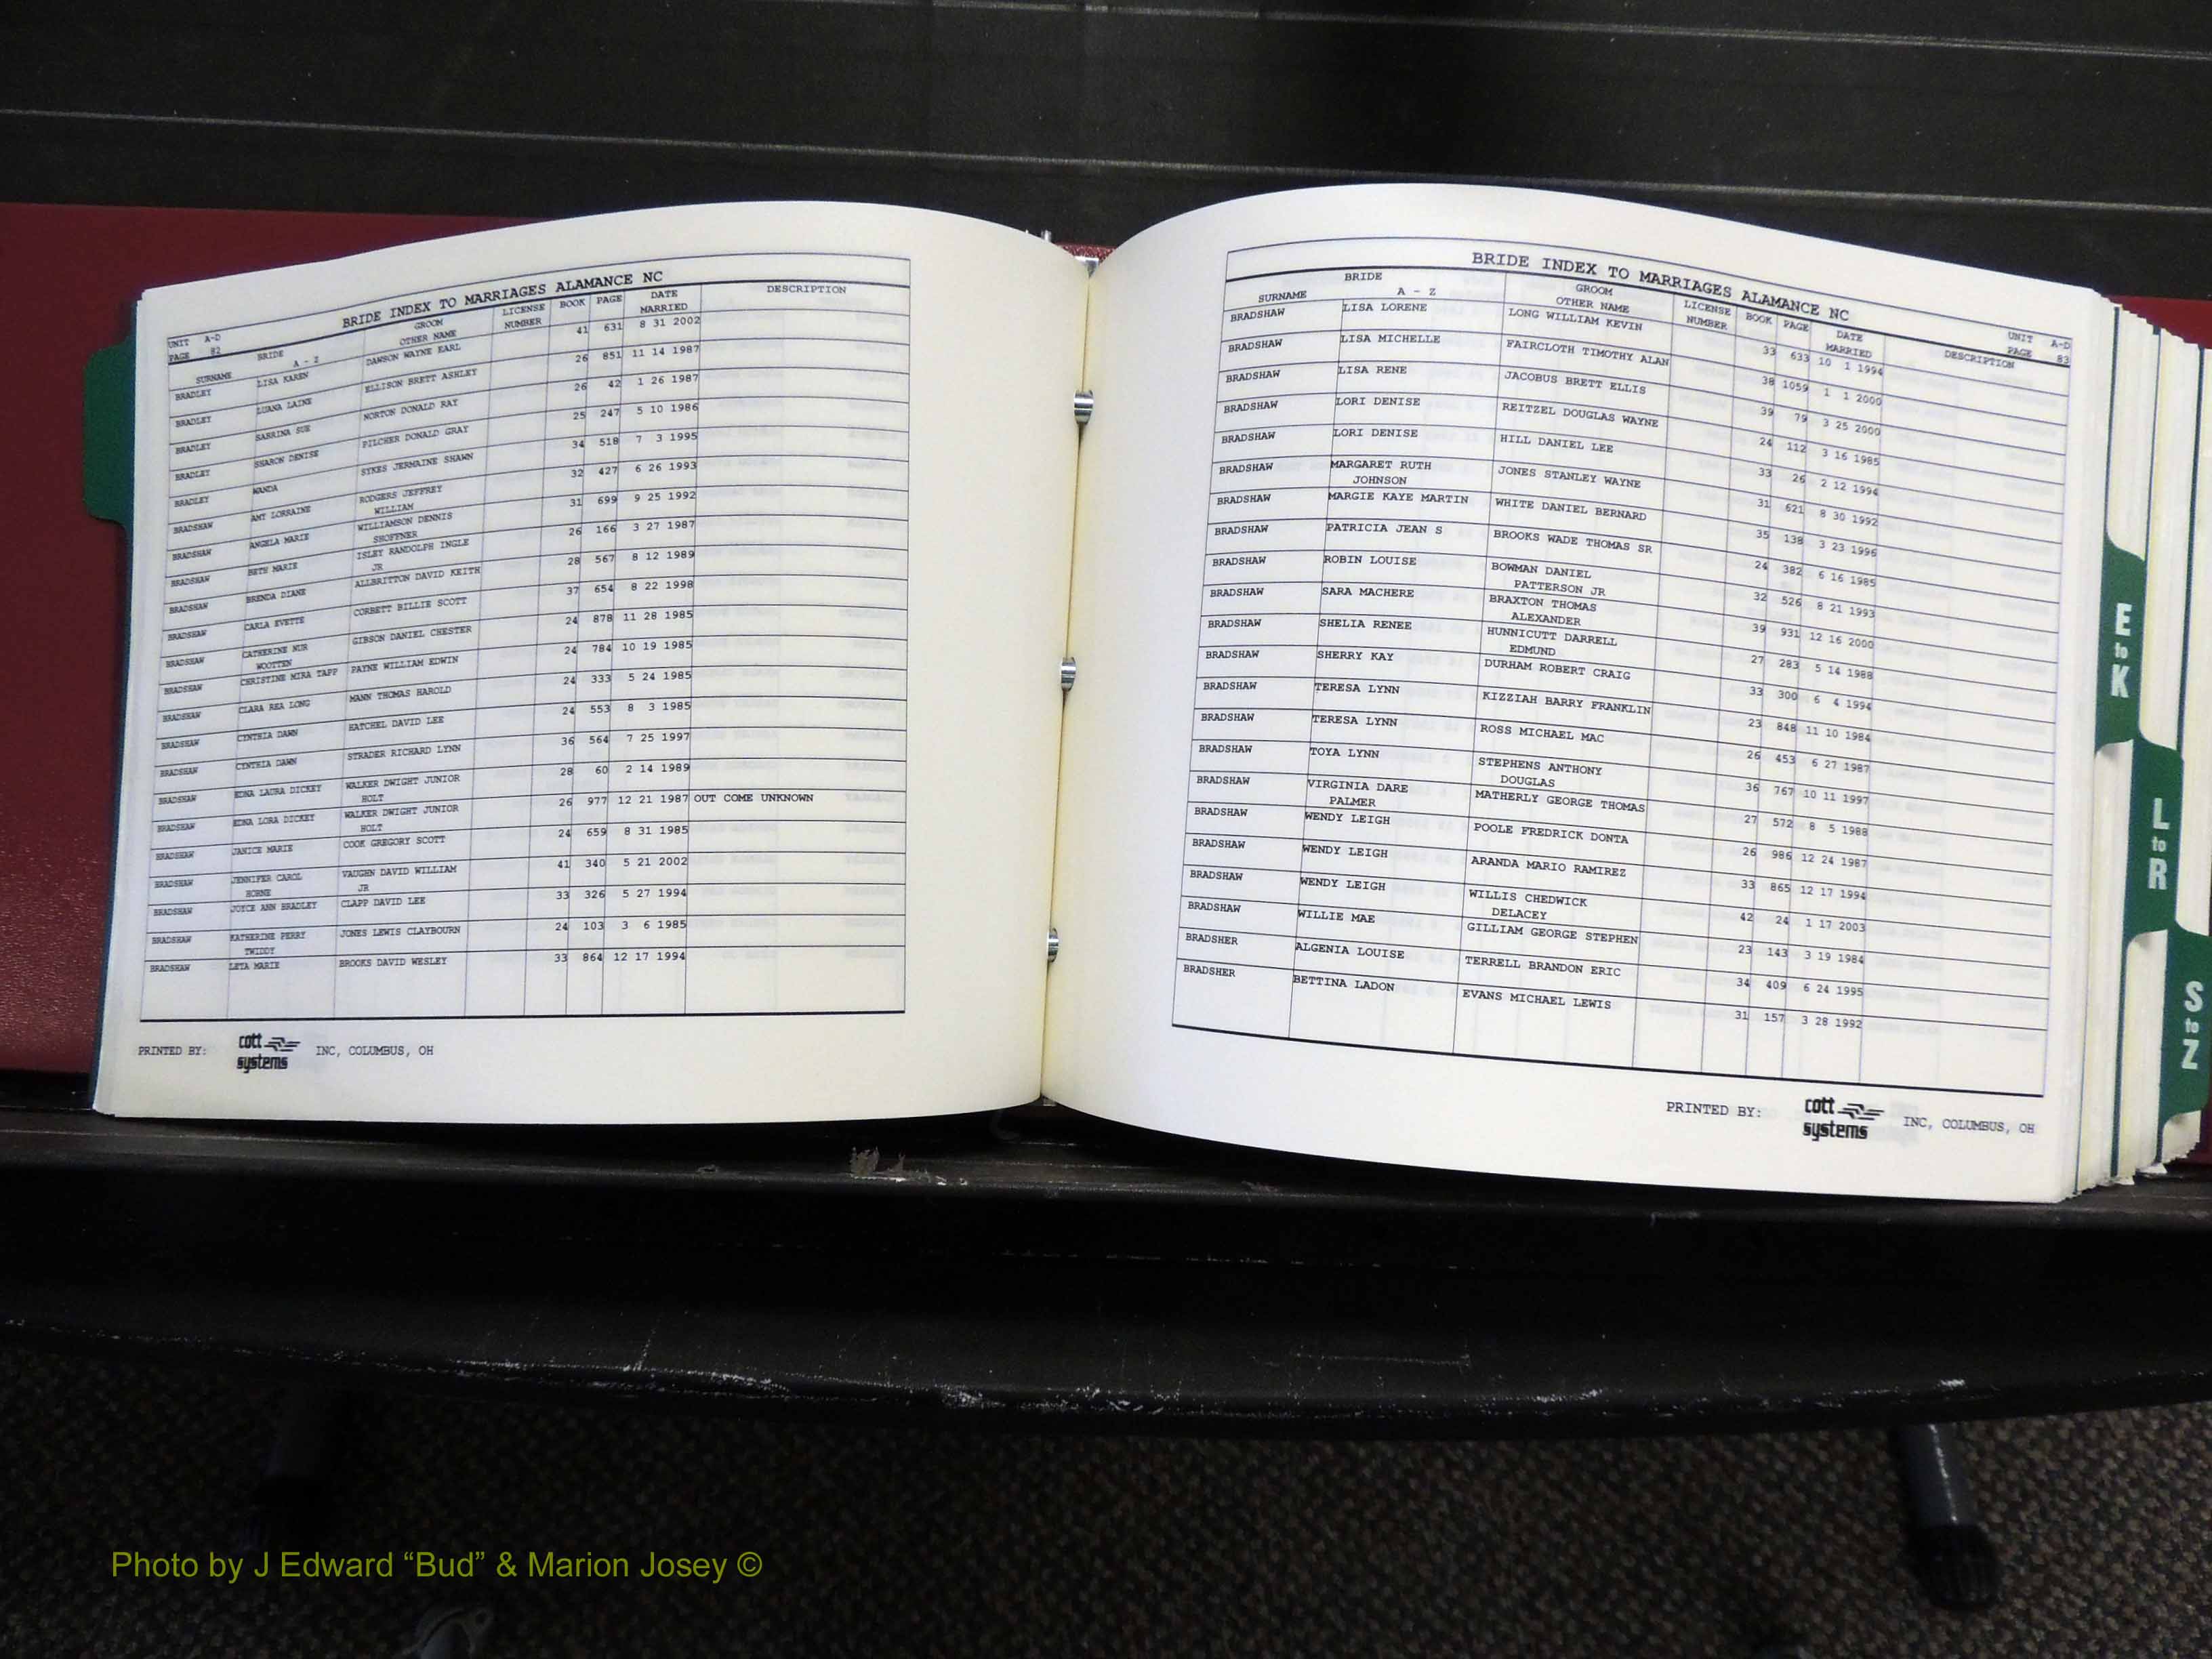 BRIDE INDEX TO MARRIAGES ALAMANCE NC
UNIT A-D
PAGE 82
BRIDE GROOM LICENSE BOOK PAGE DATE DESCRIPTION
SURNAME A - Z OTHER NAME NUMBER MARRIED
BRADLEY LISA KAREN DAWSON WAYNE EARL 41 631 8 31 2002
BRADLEY LUANA LAINE ELLISON BRETT ASHLEY 26 851 11 14 1987
BRADLEY SABRINA SUE NORTON DONALD RAY 26 42 1 26 1987
BRADLEY SHARON DENISE PILCHER DONALD GRAY 25 247 5 10 1986
BRADLEY WANDA SYKES JERMAINE SHAWN 34 518 7 3 1995
BRADSHAW AMY LORRAINE RODGERS JEFFREY 32 427 6 26 1993
WILLIAM
BRADSHAW ANGELA MARIE WILLIAMSON DENNIS 31 699 9 25 1992
SHOFFNER
BRADSHAW BETH MARIE ISLEY RANDOLPH INGLE 26 166 3 27 1987
JR
BRADSHAW BRENDA DIANE ALLBRITTON DAVID KEITH 28 567 8 12 1989
BRADSHAW CARLA EVETTE CORBETT BILLIE SCOTT 37 654 8 22 1998
BRADSHAW CATHERINE NUR GIBSON DANIEL CHESTER 24 878 11 28 1985
WOOTTEN
BRADSHAW CHRISTINE MIRA TAPP PAYNE WILLIAM EDWIN 24 784 10 19 1985
BRADSHAW CLARA REA LONG MANN THOMAS HAROLD 24 333 5 24 1985
BRADSHAW CYNTHIA DAWN HATCHEL DAVID LEE 24 553 8 3 1985
BRADSHAW CYNTHIA DAWN STRADER RICHARD LYNN 36 564 7 25 1997
BRADSHAW EDNA LAURA DICKEY WALKER DWIGHT JUNIOR 28 60 2 14 1989
HOLT
BRADSHAW EDNA LORA DICKEY WALKER DWIGHT JUNIOR 26 977 12 21 1987 OUT COME UNKNOWN
HOLT
BRADSHAW JANICE MARIE COOK GREGORY SCOTT 24 659 8 31 1985
BRADSHAW JENNIFER CAROL VAUGHN DAVID WILLIAM 41 340 5 21 2002
HORNE JR
BRADSHAW JOYCE ANN BRADLEY CLAPP DAVID LEE 33 326 5 27 1994
BRADSHAW KATHERINE PERRY JONES LEWIS CLAYBOURN 24 103 3 6 1985
TWIDDY
BRADSHAW LETA MARIE BROOKS DAVID WESLEY 33 864 12 17 1994
PRINTED BY: cott systems INC, COLUMBUS, OH
BRIDE INDEX TO MARRIAGES ALAMANCE NC
UNIT A-D
PAGE 83
BRIDE GROOM LICENSE BOOK PAGE DATE DESCRIPTION
SURNAME A - Z OTHER NAME NUMBER MARRIED
BRADSHAW LISA LORENE LONG WILLIAM KEVIN 33 633 10 1 1994
BRADSHAW LISA MICHELLE FAIRCLOTH TIMOTHY ALAN 38 1059 1 1 2000
BRADSHAW LISA RENE JACOBUS BRETT ELLIS 39 79 3 25 2000
BRADSHAW LORI DENISE REITZEL DOUGLAS WAYNE 24 112 3 16 1985
BRADSHAW LORI DENISE HILL DANIEL LEE 33 26 2 12 1994
BRADSHAW MARGARET RUTH JONES STANLEY WAYNE 31 621 8 30 1992
JOHNSON
BRADSHAW MARGIE KAYE MARTIN WHITE DANIEL BERNARD 35 138 3 23 1996
BRADSHAW PATRICIA JEAN S BROOKS WADE THOMAS SR 24 382 6 16 1985
BRADSHAW ROBIN LOUISE BOWMAN DANIEL 32 526 8 21 1993
PATTERSON JR
BRADSHAW SARA MACHERE BRAXTON THOMAS 39 931 12 16 2000
ALEXANDER
BRADSHAW SHELIA RENEE HUNNICUTT DARRELL 27 283 5 14 1988
EDMUND
BRADSHAW SHERRY KAY DURHAM ROBERT CRAIG 33 300 6 4 1994
BRADSHAW TERESA LYNN KIZZIAH BARRY FRANKLIN 23 848 11 10 1984
BRADSHAW TERESA LYNN ROSS MICHAEL MAC 26 453 6 27 1987
BRADSHAW TOYA LYNN STEPHENS ANTHONY 36 767 10 11 1997
DOUGLAS
BRADSHAW VIRGINIA DARE MATHERLY GEORGE THOMAS 27 572 8 5 1988
PALMER
BRADSHAW WENDY LEIGH POOLE FREDRICK DONTA 26 986 12 24 1987
BRADSHAW WENDY LEIGH ARANDA MARIO RAMIREZ 33 865 12 17 1994
BRADSHAW WENDY LEIGH WILLIS CHEDWICK 42 24 1 17 2003
DELACEY
BRADSHAW WILLIE MAE GILLIAM GEORGE STEPHEN 23 143 3 19 1984
BRADSHER ALGENIA LOUISE TERRELL BRANDON ERIC 34 409 6 24 1995
BRADSHER BETTINA LADON EVANS MICHAEL LEWIS 31 157 3 28 1992
PRINTED BY: cott systems INC, COLUMBUS, OH
E to K
L to R
S to Z
Photo by J Edward “Bud” & Marion Josey ©